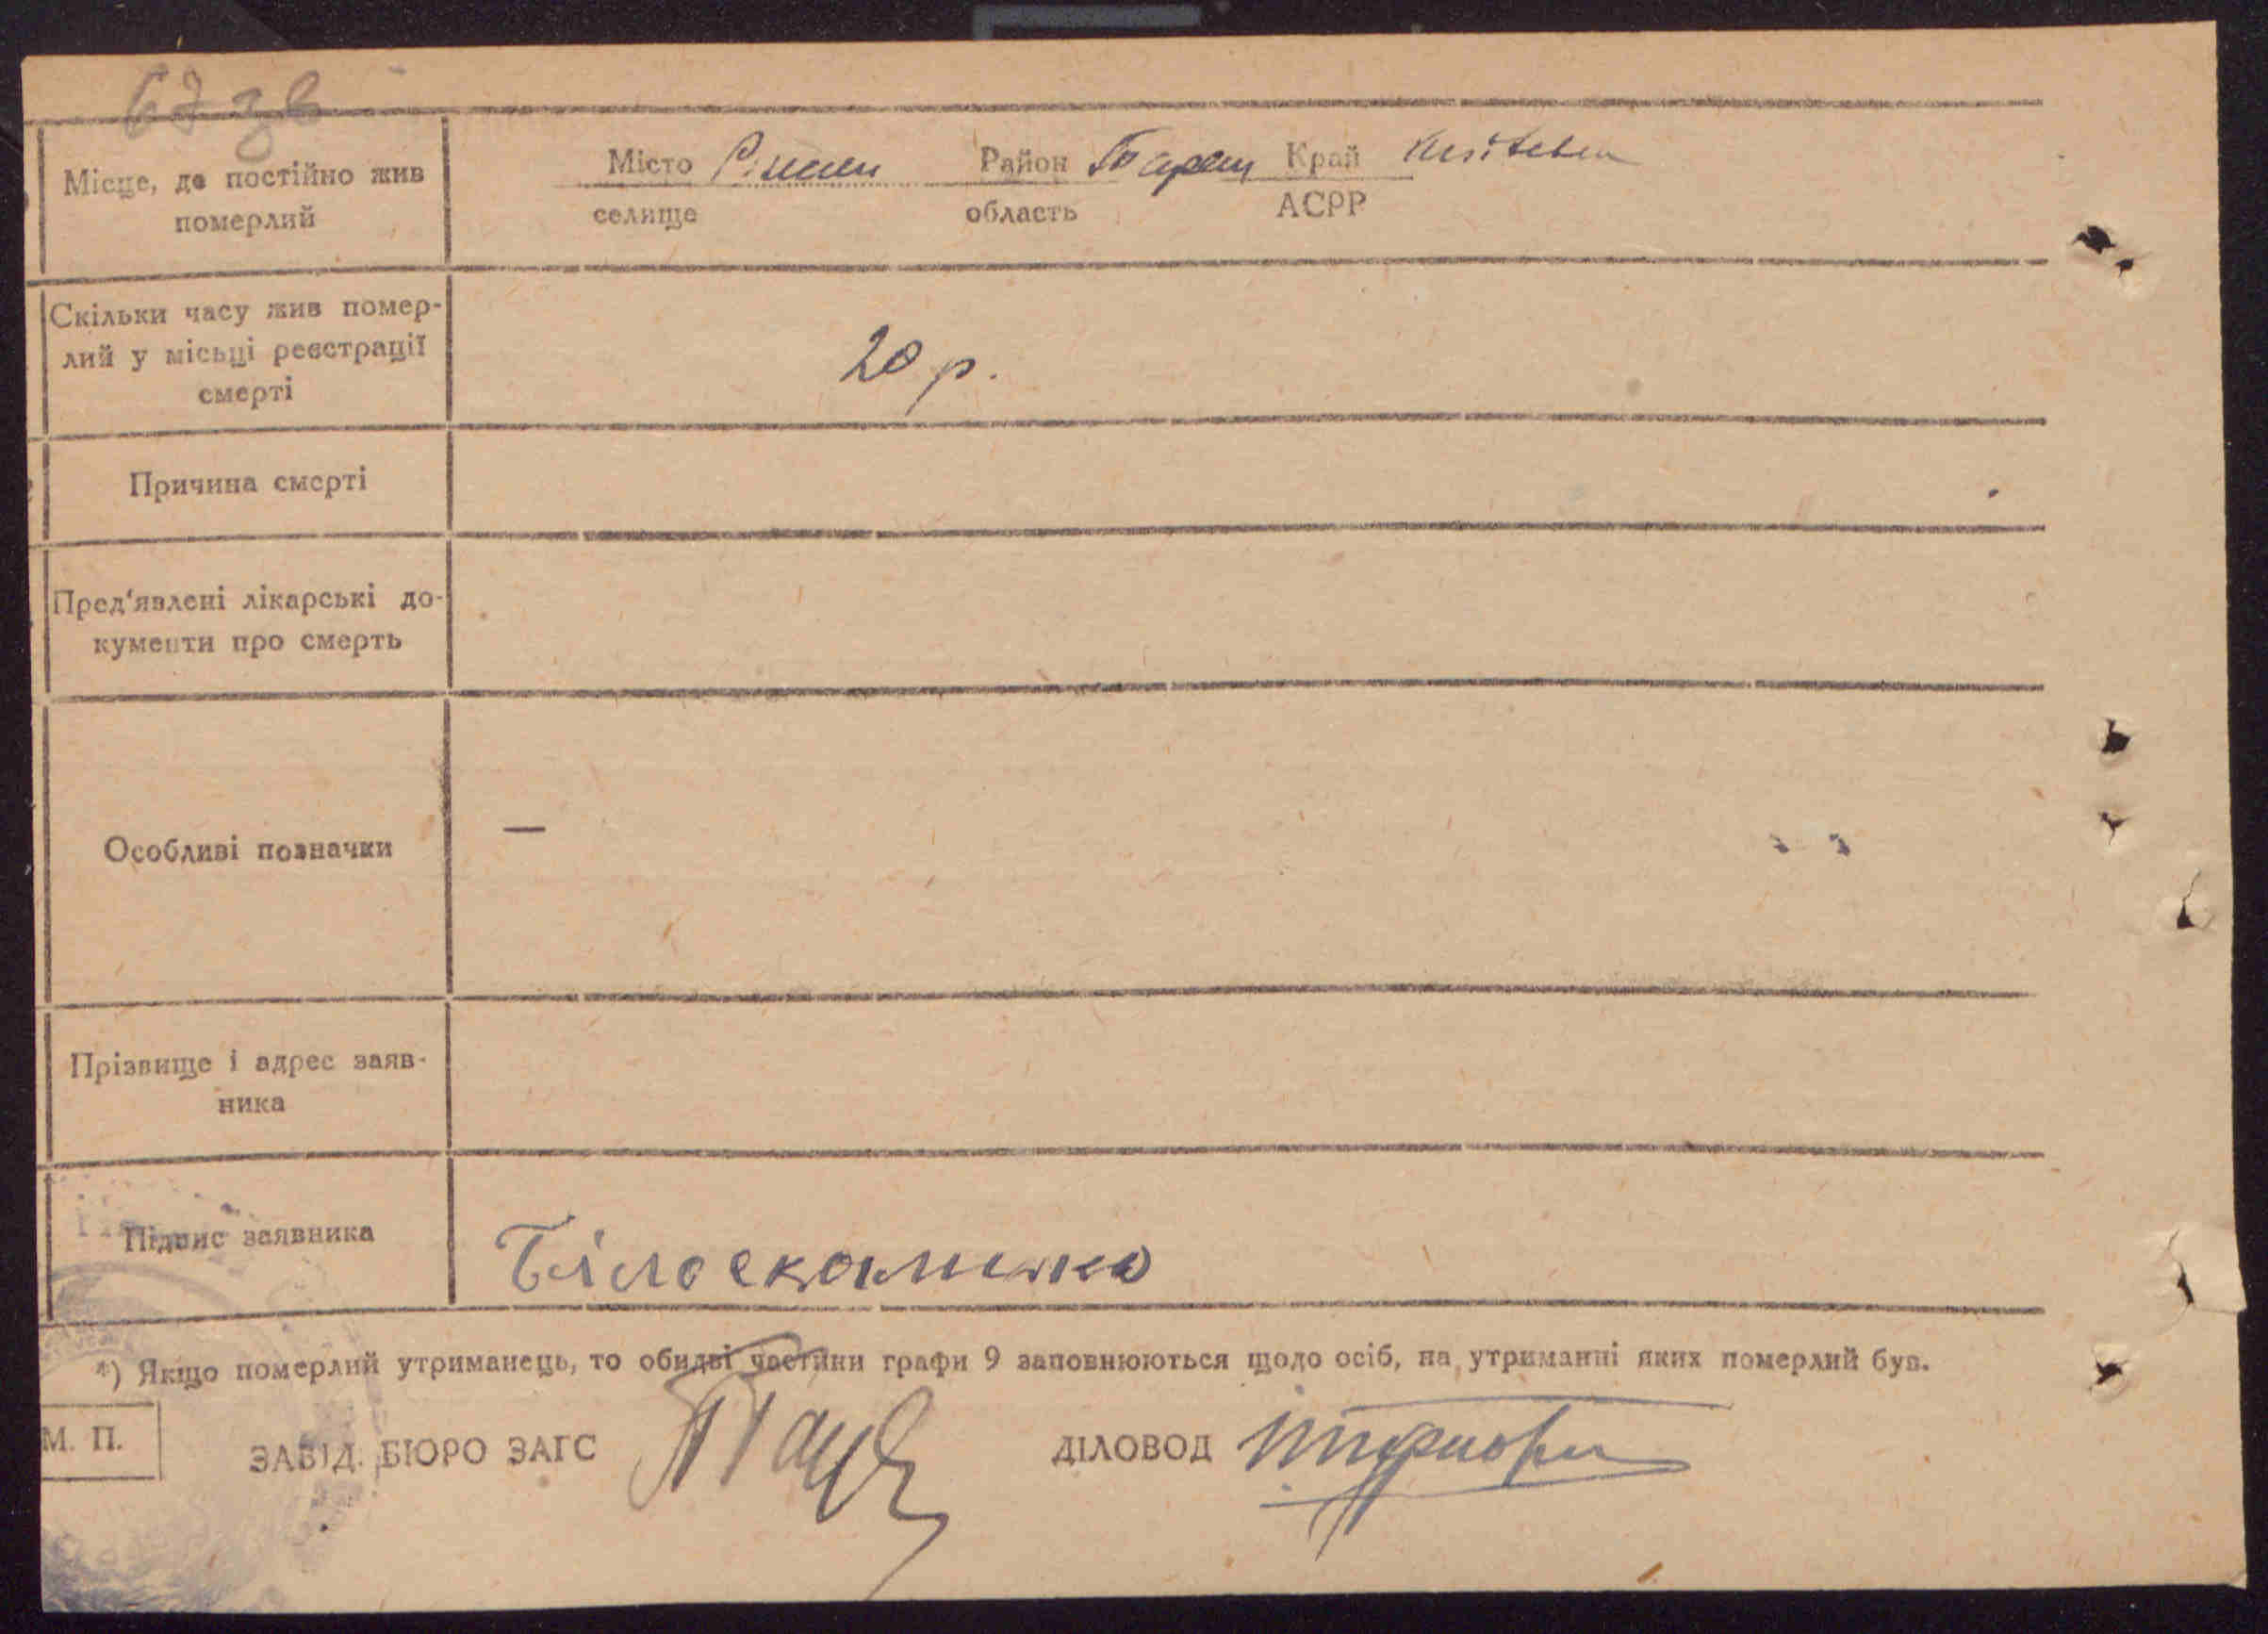 67 зв
Місце, де постійно жив померлий
Місто Район Край
селище область АСРР
Скільки часу жив помер-
лий у місьці реєстрації
смерті
20 р.
Причина смерті
Пред'явлені лікарські до-
кументи про смерть
Особливі позначки
—
Прізвище і адрес заяв-
ника
Підпис заявника
*) Якщо померлий утриманець, то обидві частини графи 9 заповнюються щодо осіб, на утриманні яких померлий був.
М. П.
ЗАВІД. БЮРО ЗАГС ДІЛОВОД